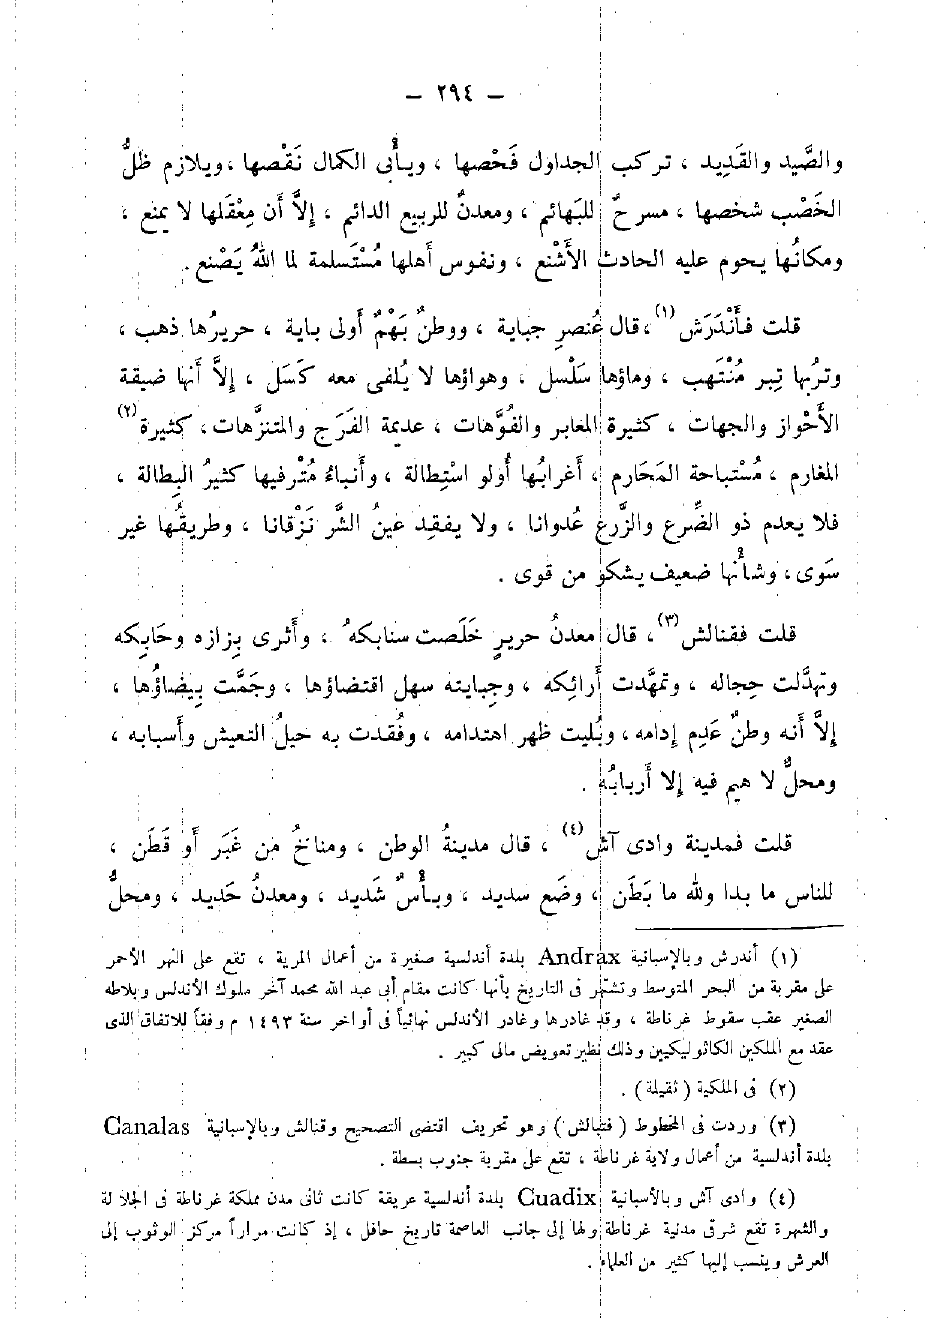 — ٢٩٤ —
والصَّيد والقَدِيد ، تركب الجداول فَحْصها ، ويأْبى الكمال نَقْصها ، ويلازم ظلُّ
الخَصْب شخصها ، مسرحٌ للبَهائم ، ومعدنٌ للربيع الدائم ، إلاَّ أن مِعْقَلها لا يمنع ،
ومكانُها يحوم عليه الحادث الأَشْنع ، ونفوس أَهلها مُسْتَسلمة لما اللهُ يَصْنع .
قلت فأَنْدَرَش (١) ، قال عُنصرِ جباية ، ووطنٌ بَهْمٌ أولى باية ، حريرُها ذهب ،
وتربُها تِبر مُنْتَهب ، وماؤها سَلْسل ، وهواؤها لا يُلفى معه كَسَل ، إلاَّ أَنها ضيقة
الأَحْواز والجهات ، كثيرة المعابر والفُوَّهات ، عديمة الفَرَج والمتنزَّهات ، كثيرة (٢)
المغارم ، مُسْتباحة المَحَارم ، أَعرابُها أُولو اسْتِطالة ، وأَنباءُ مُتْرفيها كثيرُ البِطالة ،
فلا يعدم ذو الضِّرع والزَّرع عُدوانا ، ولا يفقِد عينُ الشَّر نَزْقانا ، وطريقُها غير
سَوى ، وشأْنُها ضعيف يشكو من قوى .
قلت فقنالش (٣) ، قال معدنُ حريرٍ خَلَصت سنابكهُ ، وأَثرى بِزازه وحَابِكه
وتهدَّلت حِجاله ، وتمهَّدت أَرائكه ، وجِبايته سهل اقتضاؤها ، وجَمَّت بِيضاؤُها ،
إلاَّ أَنه وطنٌ عَدِم إدامه ، وبُليت ظهر اهتدامه ، وفُقدت به حيلُ التعيش وأَسبابه ،
ومحلٌّ لا هيم فيه إلا أَربابُه .
قلت فمدينة وادى آش (٤) ، قال مدينةُ الوطن ، ومناخُ من غَبَر أَو قَطَن ،
للناس ما بدا ولله ما بَطَن ، وضَع سديد ، وبأْسٌ شَديد ، ومعدنُ حَديد ، ومحلُّ
(١) أندرش وبالإسبانية Andrax بلدة أندلسية صغيرة من أعمال المرية ، تقع على النهر الأحمر
على مقربة من البحر المتوسط وتشتهر فى التاريخ بأنها كانت مقام أبى عبد الله محمد آخر ملوك الأندلس وبلاطه
الصغير عقب سقوط غرناطة ، وقد غادرها وغادر الأندلس نهائياً فى أواخر سنة ١٤٩٣ م وفقاً للاتفاق الذى
عقد مع الملكين الكاثوليكيين وذلك نظير تعويض مالى كبير .
(٢) فى الملكية ( ثقيلة ) .
(٣) وردت فى المخطوط ( فتيالش ) وهو تحريف اقتضى التصحيح وقنالش وبالإسبانية Canalas
بلدة أندلسية من أعمال ولاية غرناطة ، تقع على مقربة جنوب بسطة .
(٤) وادى آش وبالأسبانية Cuadix بلدة أندلسية عريقة كانت ثانى مدن مملكة غرناطة فى الجلالة
والشهرة تقع شرق مدنية غرناطة ولها إلى جانب العاصمة تاريخ حافل ، إذ كانت مراراً مركز الوثوب إلى
العرش وينسب إليها كثير من العلماء .